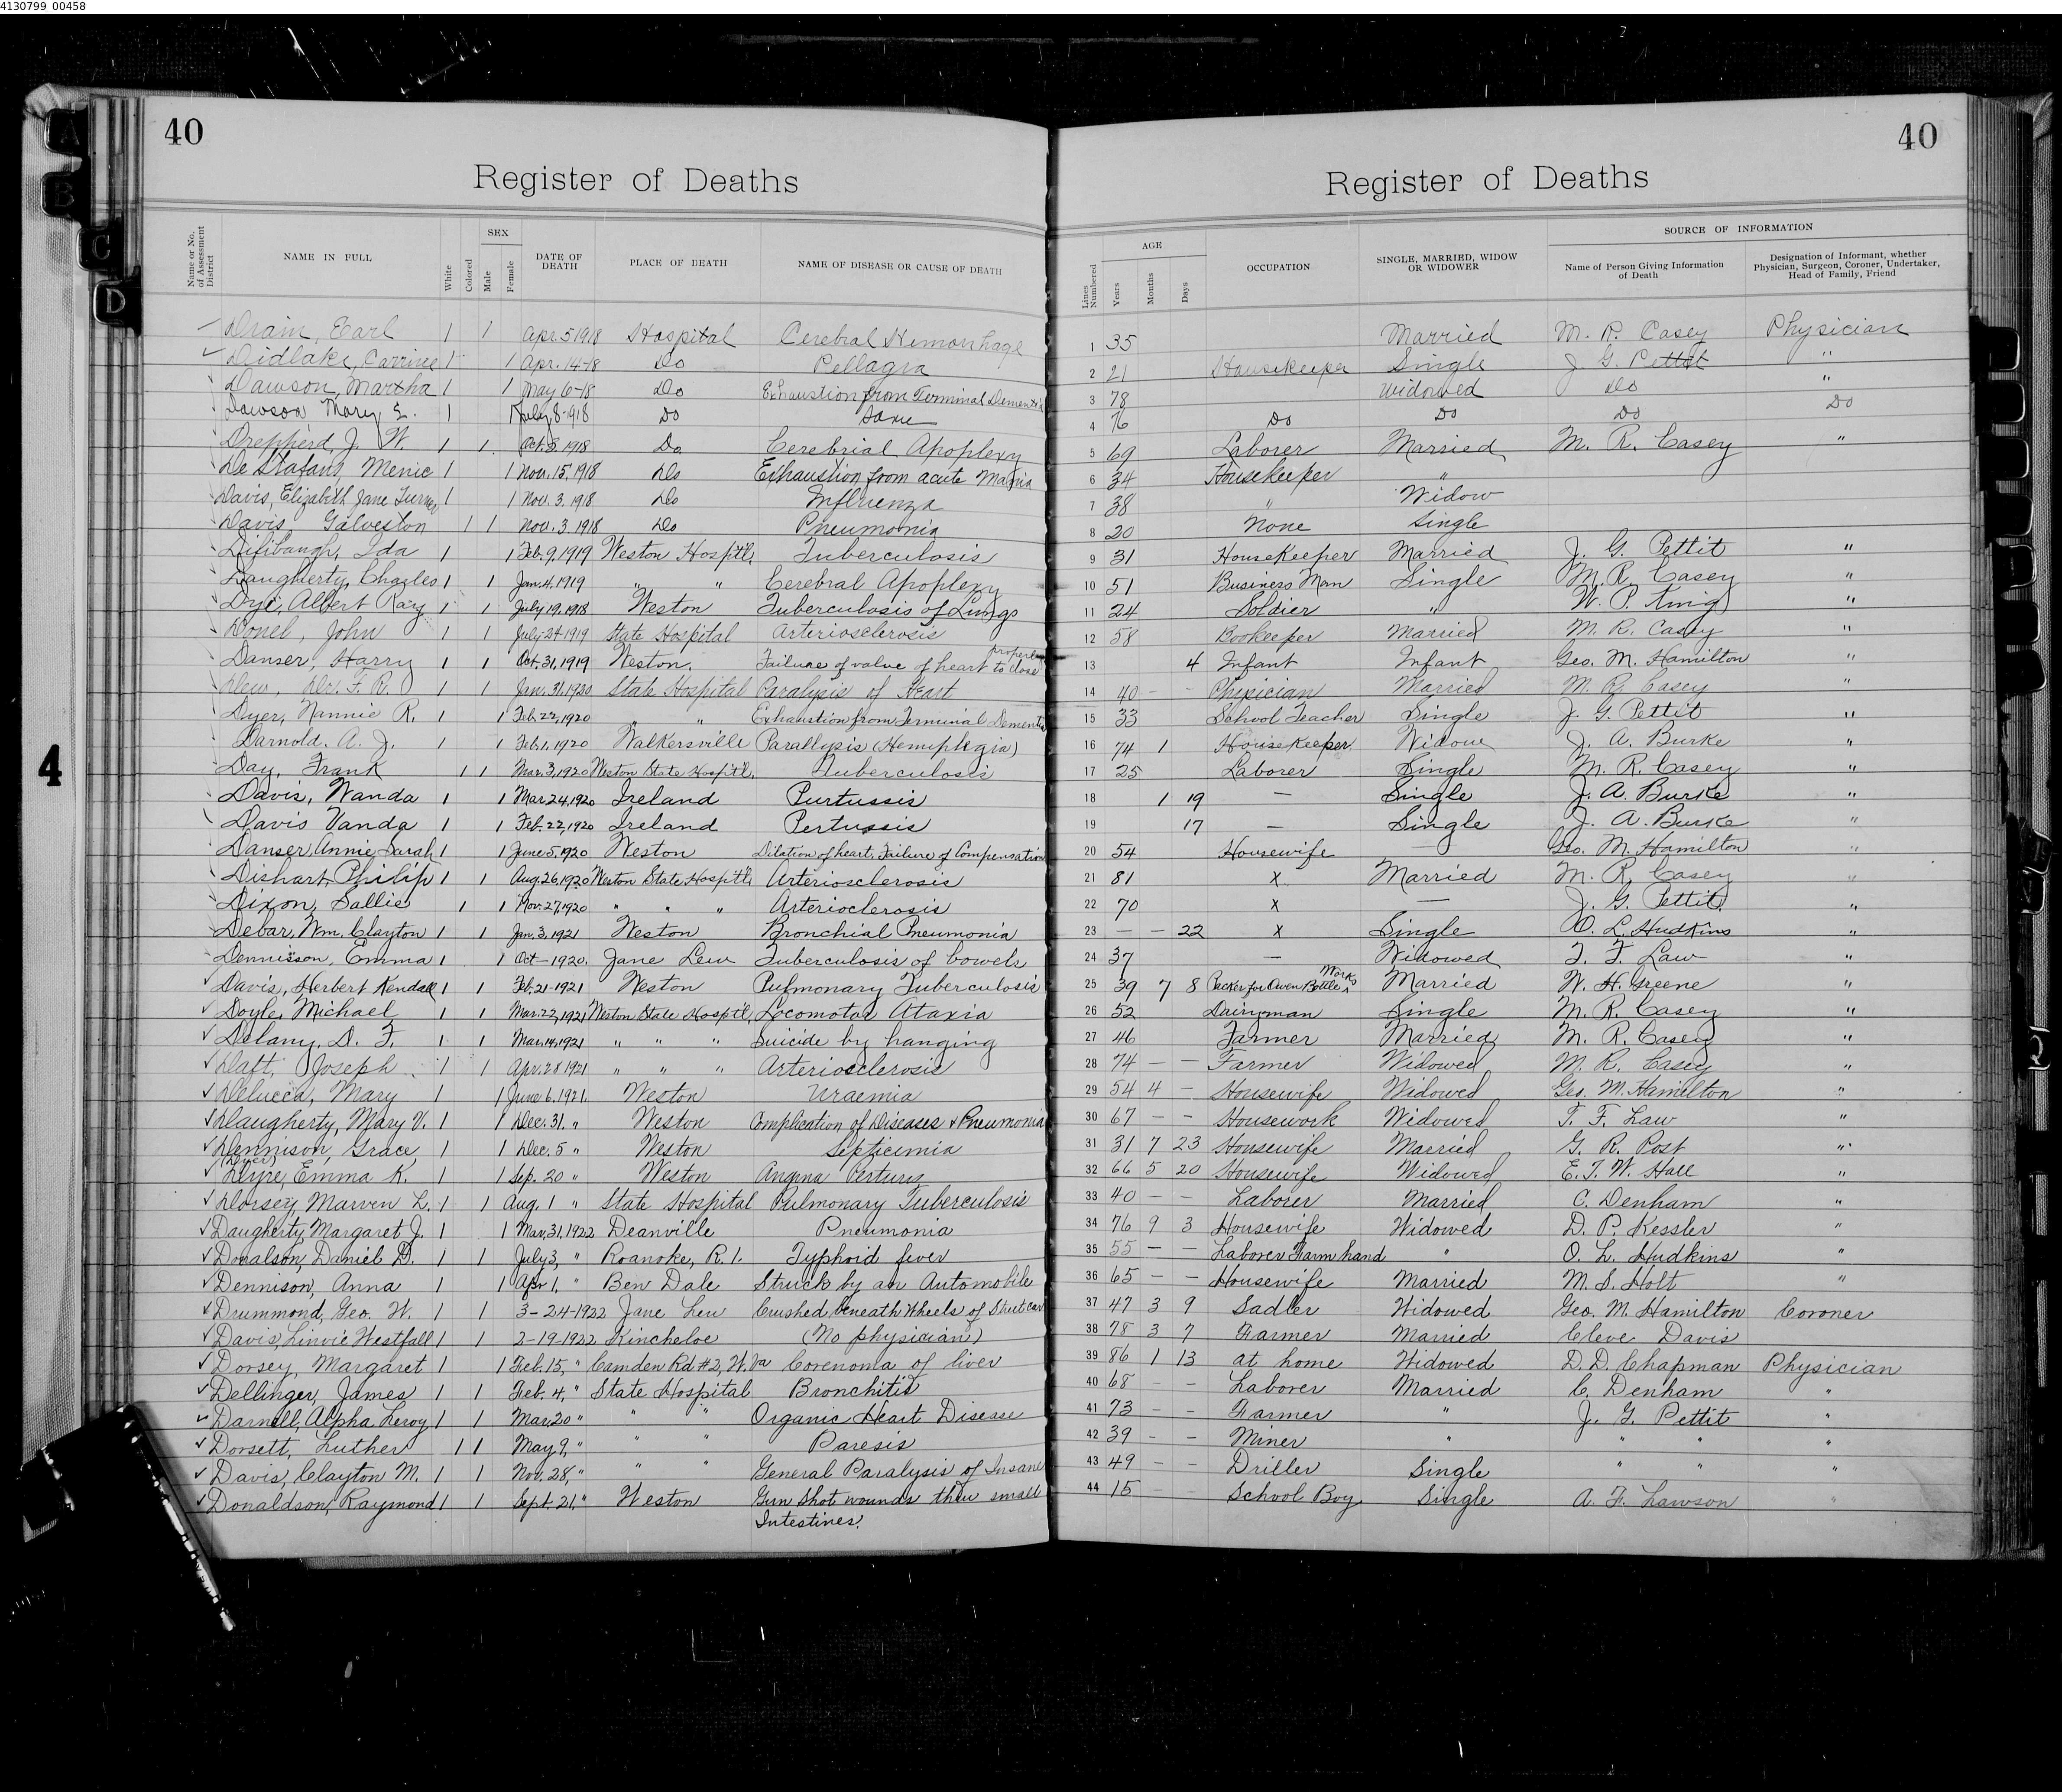 4130799_00458
40
Register of Deaths
Name or No. of Assessment District
NAME IN FULL
White
Colored
SEX
Male
Female
DATE OF DEATH
PLACE OF DEATH
NAME OF DISEASE OR CAUSE OF DEATH
Drain, Earl 1 1 Apr. 5 1918 Hospital Cerebral Hemorrhage
Didlake, Carrine 1 1 Apr. 14-18 Do Pellagra
Dawson, Martha 1 1 May 6-18 Do Exhaustion from Terminal Dementia
Dawson Mary E. 1 1 July 8-1918 Do Same
Drepperd, J. W. 1 1 Oct. 3, 1918 Do Cerebrial Apoplexy
De Stafans Menie 1 1 Nov. 15, 1918 Do Exhaustion from acute Mania
Davis, Elizabeth Jane Turner 1 1 Nov. 3. 1918 Do Influenza
Davis Galveston 1 1 Nov. 3 1918 Do Pneumonia
Difibaugh, Ida 1 1 Feb. 9, 1919 Weston Hosptl, Tuberculosis
Daugherty, Charles 1 1 Jan. 4, 1919 " " Cerebral Apoplexy
Dye, Albert Ray 1 1 July 19, 1918 Weston Tuberculosis of Lungs
Donel, John 1 1 July 24 1919 State Hospital Arteriosclerosis
Danser, Harry 1 1 Oct. 31, 1919 Weston. Failure of value of heart to close properly
Dew, Dr. F. R. 1 1 Jan. 31, 1920 State Hospital Paralysis of Heart
Dyer, Nannie R. 1 1 Feb. 22, 1920 " " Exhaustion from Terminal Dementia
Darnold. A. J. 1 1 Feb. 1, 1920 Walkersville Parallysis (Hemiplegia)
Day, Frank 1 1 Mar. 3, 1920 Weston State Hosptl, Tuberculosis
Davis, Wanda 1 1 Mar. 24, 1920 Ireland Purtussis
Davis Vanda 1 1 Feb. 22, 1920 Ireland Pertussis
Danser, Annie Sarah 1 1 June 5, 1920 Weston Dilation of heart. Failure of Compensation
Dishart, Philip 1 1 Aug. 26, 1920 Weston State Hosptl, Arteriosclerosis
Dixon, Sallie 1 1 Nov. 27, 1920 " " " Arterioclerosis
Debar, Wm. Clayton 1 1 Jan. 3, 1921 Weston Bronchial Pneumonia
Dennisson, Emma 1 1 Oct - 1920. Jane Lew Tuberculosis of bowels
Davis, Herbert Kendall 1 1 Feb. 21-1921 Weston Pulmonary Tuberculosis
Doyle, Michael 1 1 Mar. 22, 1921 Weston State Hosptl, Locomotar Ataxia
Delany, D. F. 1 1 Mar. 14, 1921 " " " Suicide by hanging
Daft, Joseph 1 1 Apr. 28 1921 " " " Arteriosclerosis
Delucca, Mary 1 1 June 6, 1921. Weston Uraemia
Daugherty, Mary V. 1 1 Dec. 31. " Weston Complication of Diseases & Pneumonia
Dennison, Grace 1 1 Dec. 5 " Weston Septicimia
Dyre, Emma K. 1 1 Sep. 20 " Weston Angina
Dorsey, Marven L. 1 1 Aug. 1 " State Hospital Pulmonary Tuberculosis
Daugherty, Margaret J. 1 1 Mar. 31, 1922 Deanville Pneumonia
Donalson, Daniel D. 1 1 July 3, " Roanoke, R. 1. Typhoid fever
Dennison, Anna 1 1 Apr 1, " Ben Dale Struck by an Automobile
Drummond, Geo. W. 1 1 3-24-1922 Jane Lew Crushed beneath wheels of Street car
Davis, Linvie Westfall 1 1 2-19-1922 Kincheloe (No physician)
Dorsey, Margaret 1 1 Feb. 15, " Camden Rd #2, W. Va Corenoma of liver
Dellinger, James 1 1 Feb. 4, " State Hospital Bronchitis
Darnell, Alpha Leroy 1 1 Mar. 20 " " " Organic Heart Disease
Dorsett, Luther 1 1 May 9, " " " Paresis
Davis, Clayton M. 1 1 Nov. 28, " " " General Paralysis of Insane
Donaldson, Raymond 1 1 Sept. 21, " Weston Gun Shot wounds thru small
Intestines.
A
B
C
D
4
40
Register of Deaths
Lines Numbered
AGE
Years
Months
Days
OCCUPATION
SINGLE, MARRIED, WIDOW OR WIDOWER
SOURCE OF INFORMATION
Name of Person Giving Information of Death
Designation of Informant, whether Physician, Surgeon, Coroner, Undertaker, Head of Family, Friend
1 35 Married M. R. Casey Physician
2 21 Housekeeper Single J. G. Pettit "
3 78 Widowed Do "
4 76 Do Do Do Do
5 69 Laborer Married M. R. Casey "
6 34 Housekeeper "
7 38 " Widow
8 20 None Single
9 31 HouseKeeper Married J. G. Pettit "
10 51 Business Man Single M. R. Casey "
11 24 Soldier " W. P. King "
12 58 Bookeeper Married M. R. Casey "
13 4 Infant Infant Geo. M. Hamilton "
14 40 - - Physician Married M. R. Casey "
15 33 School Teacher Single J. G. Pettit "
16 74 1 Housekeeper Widow J. A. Burke "
17 25 Laborer Single M. R. Casey "
18 1 19 - Single J. A. Burke "
19 17 - Single J. A. Burke "
20 54 Housewife - Geo. M. Hamilton "
21 81 X Married M. R. Casey "
22 70 X - J. G. Pettit "
23 - - 22 X Single O. L. Hudkins "
24 37 - Widowed T. F. Law "
25 39 7 8 Packer for Owen Bottle Works Married W. H. Greene "
26 52 Dairyman Single M. R. Casey "
27 46 Farmer Married M. R. Casey "
28 74 - - Farmer Widowed M. R. Casey "
29 54 4 - Housewife Widowed Geo. M. Hamilton "
30 67 - - Housework Widowed T. F. Law "
31 31 7 23 Housewife Married G. R. Post "
32 66 5 20 Housewife Widowed E. T. W. Hall "
33 40 - - Laborer Married C. Denham "
34 76 9 3 Housewife Widowed D. P. Kessler "
35 55 - - Laborer Farm hand " O. L. Hudkins "
36 65 - - Housewife Married M. S. Holt "
37 47 3 9 Sadler Widowed Geo. M. Hamilton Coroner
38 78 3 7 Farmer Married Cleve Davis
39 86 1 13 at home Widowed D. D. Chapman Physician
40 68 - - Laborer Married C. Denham "
41 73 - - Farmer " J. G. Pettit "
42 39 - - Miner " " " "
43 49 - - Driller Single " " "
44 15 - - School Boy Single A. F. Lawson "